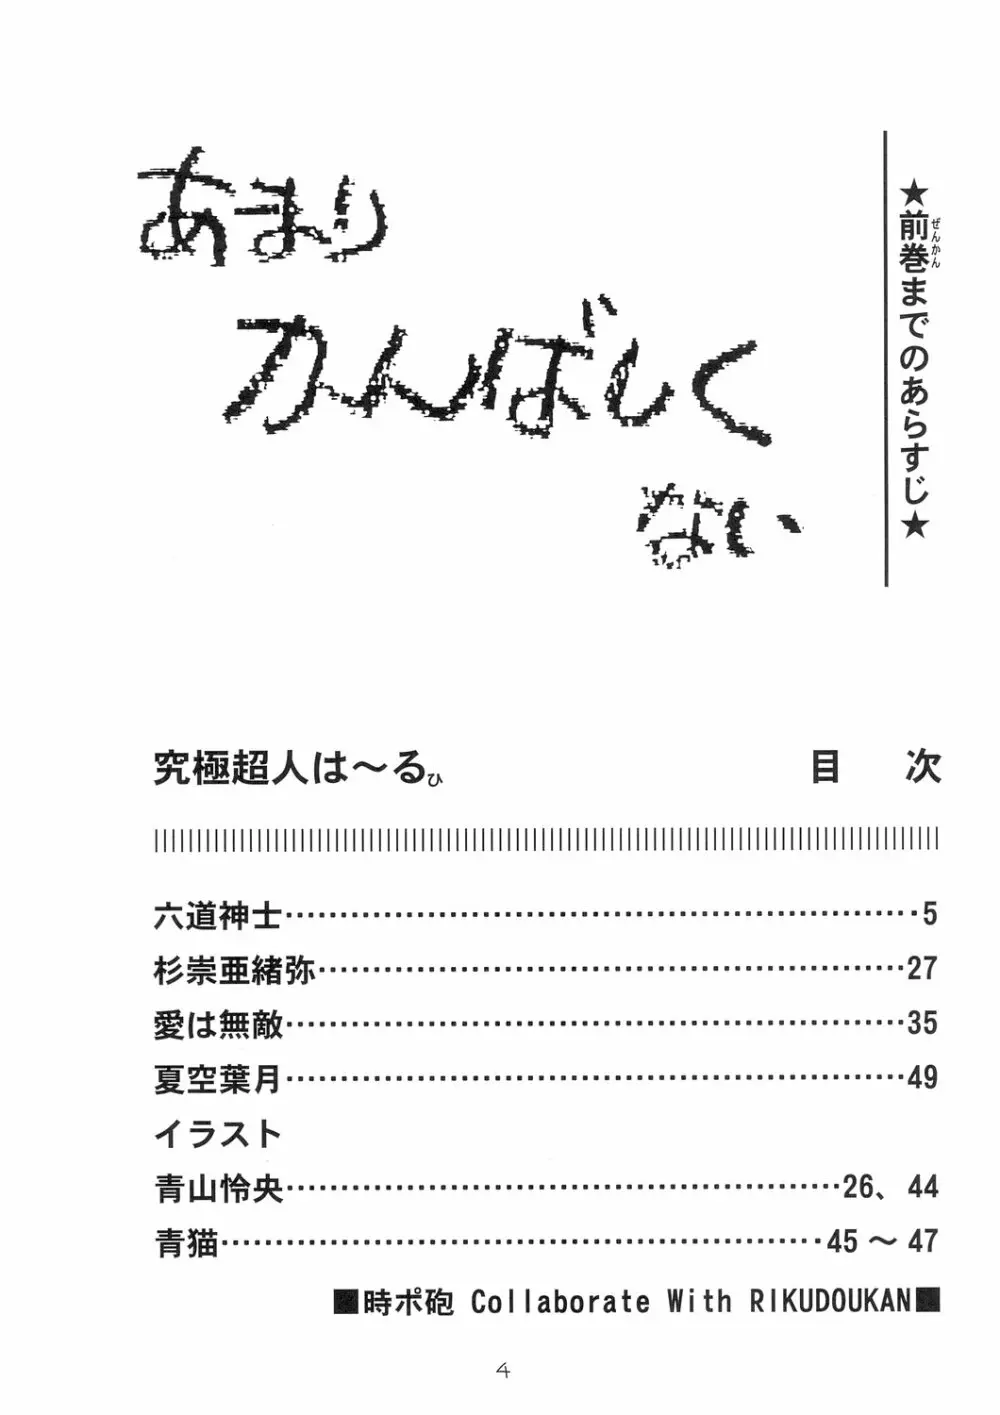 ★前巻までのあらすじ★
ぜんかん
あまり
かんばしく
ない
究極超人は～るひ 目 次
六道神士……………………………………………………5
杉崇亜緒弥…………………………………………………27
愛は無敵……………………………………………………35
夏空葉月……………………………………………………49
イラスト
青山怜央………………………………………………26、44
青猫……………………………………………………45～47
■時ポ砲 Collaborate With RIKUDOUKAN■
4